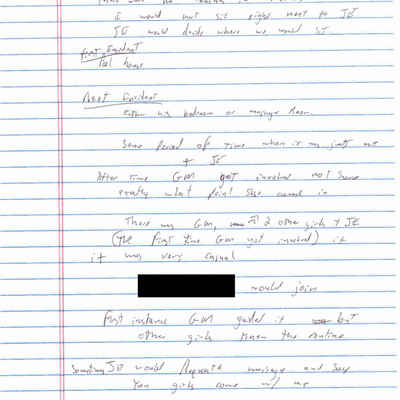 I would not sit right next to JE
JE would decide where we would sit
First Incident
Pool house
Next Incident
either his bedroom or massage room
Some period of time where it was just me
+ JE
After time GM got involved not sure
exactly what point she came in
There was GM, 2 other girls + JE
(The first time GM got involved) it
it was very casual
would join
First instance GM guided it but
other girls knew the routine
Sometimes JE would request a massage and say
you girls come w/ me